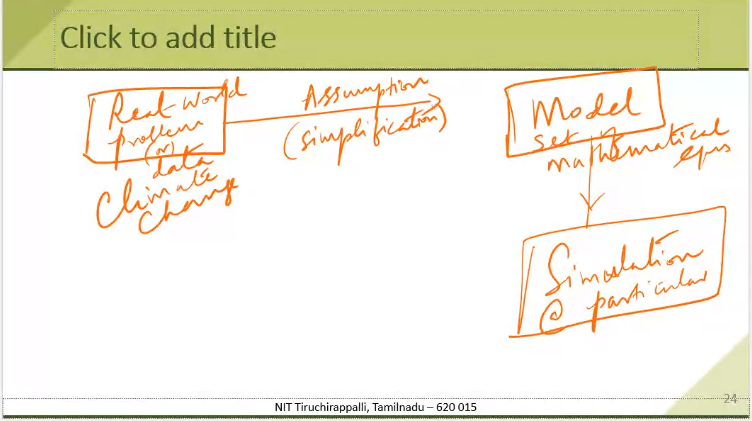 Click to add title
Real World
problem
(or)
data
Climate
Change
Assumption
(simplification)
Model
set of
mathematical
eqns
Simulation
@ particular
24
NIT Tiruchirappalli, Tamilnadu – 620 015